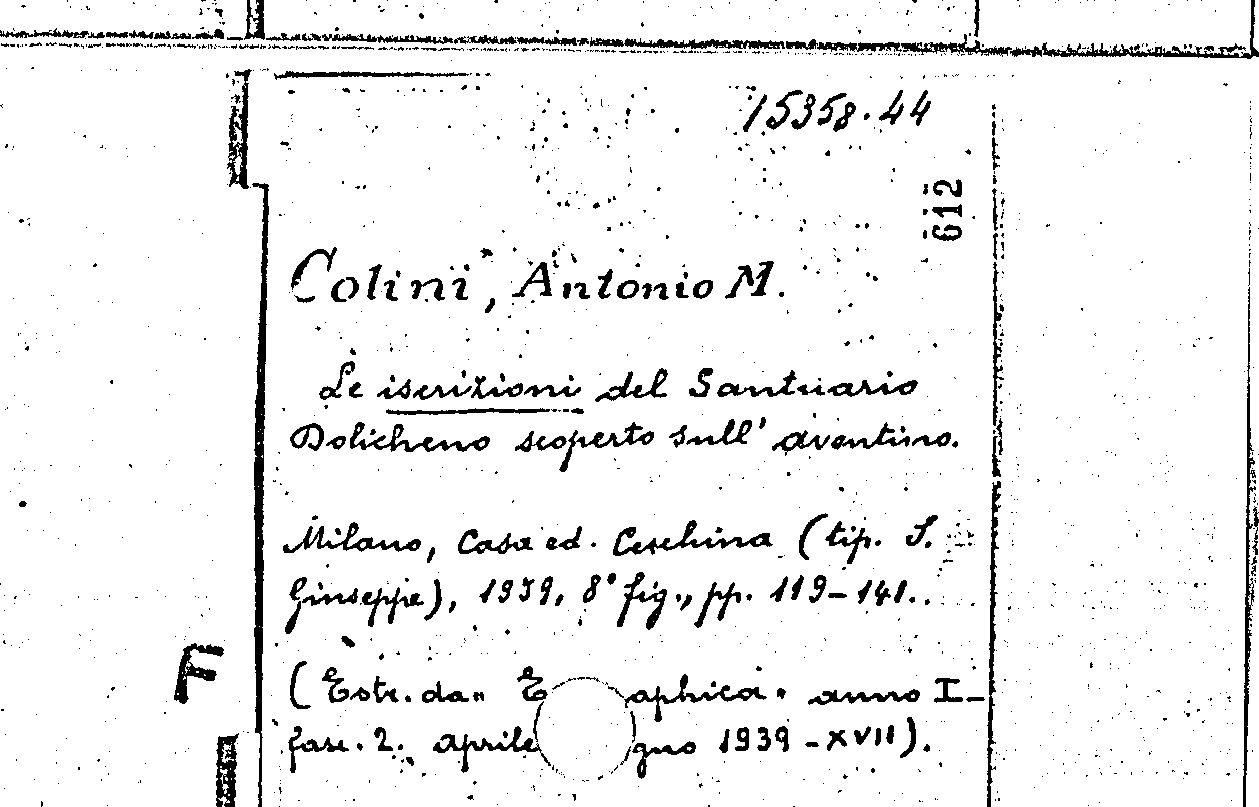 15358.44
612
Colini, Antonio M.
Le iscrizioni del Santuario
Dolicheno scoperto sull' aventino.
Milano, Casa ed. Ceschina (tip. S.
Giuseppe), 1939, 8° fig., pp. 119-141.
F
(Estr. da " E aphica " anno I-
fasc. 2. aprile gno 1939 - XVII).